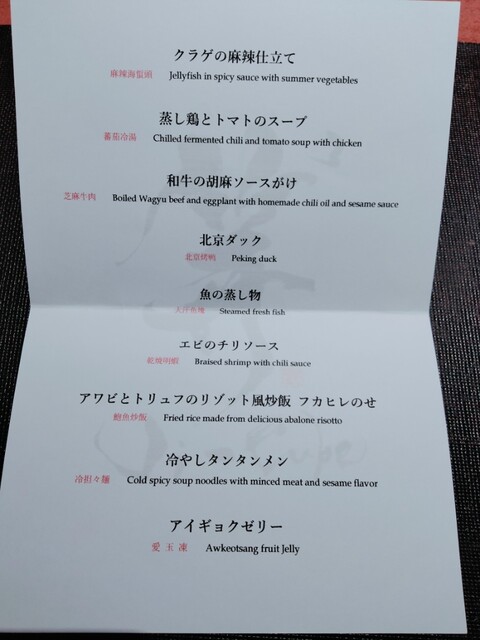 クラゲの麻辣仕立て
麻辣海蜇頭 Jellyfish in spicy sauce with summer vegetables
蒸し鶏とトマトのスープ
蕃茄冷湯 Chilled fermented chili and tomato soup with chicken
和牛の胡麻ソースがけ
芝麻牛肉 Boiled Wagyu beef and eggplant with homemade chili oil and sesame sauce
北京ダック
北京烤鴨 Peking duck
魚の蒸し物
Steamed fresh fish
エビのチリソース
乾焼明蝦 Braised shrimp with chili sauce
アワビとトリュフのリゾット風炒飯 フカヒレのせ
鮑魚炒飯 Fried rice made from delicious abalone risotto
冷やしタンタンメン
冷担々麺 Cold spicy soup noodles with minced meat and sesame flavor
アイギョクゼリー
愛玉凍 Awkeotsang fruit Jelly